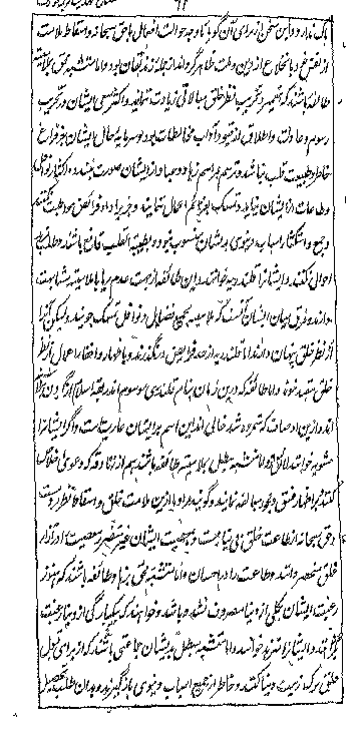 باک ندارد و این سخن از سر ای آن گوید تا وجه حوالت افعال با حق سبحانه و اسقاط ملامت
از نفس خود با انخلاع از دین و ملت ظاهر گرداند از جمله زندیقان بود و اما متشبه محق بملامتیه
طائفه باشند که تعمیر و تخریب نظر خلق مبالاتی زیادت ننمایند و اکثر سعی ایشان در تخریب
رسوم و عادات و اطلاق از قیود آداب مخالطات بود و سرمایه حال ایشان جز فراغ
خاطر و طیبت قلب نباشد و ترسم بمراسم زهاد و عباد از ایشان صورت نه بندد و اکثار نوافل
و طاعات از ایشان نیاید و تمسک بعزائم اعمال ننمایند و جز بر اداء فرائض مواظبت نکنند
و جمع و استکثار اسباب دنیوی بدیشان منسوب نبود و بطیبة القلب قانع باشند و طلب مزید
احوال نکنند و ایشانرا قلندریه خوانند و این طائفه از جهت عدم ریا با ملامتیه مشابهت
دارند و فرق میان ایشان آنست که ملامتیه بجمیع فضایل و نوافل تمسک جویند ولیکن آنرا
از نظر خلق پنهان دارند اما قلندریه از حد فرایض در نگذرند و باظهار و اخفاء اعمال از نظر
خلق مقید نشوند و اما طائفه که درین زمان بنام قلندری موسوم اند ربقه اسلام از گردن برداشته
اند و ازین اوصاف که شمرده شد خالی اند این اسم بر ایشان عاریت است و اگر ایشانرا
حشویه خوانند لایق تر و اما متشبه مبطل بملامتیه طائفه باشند هم از زنادقه که دعوی اخلاص
کنند و بر اظهار فسق و فجور مبالغه نمایند و گویند مراد ما ازین ملامت خلق و اسقاط نظر مردمست
و حق سبحانه از طاعت خلق بی نیاز است و بمعصیت ایشان غیر متضرر و معصیت را در آزار
خلق منحصر دانند و طاعت را در احسان و اما متشبه محق بزهاد طائفه باشند که هنوز
رغبت ایشان بکلی از دنیا مصروف نشده باشد و خواهند که بیکبارگی از دنیا رغبت
بگردانند و ایشانرا متزهد خوانند و اما متشبه مبطل بدیشان جماعتی باشند که از برای قبول
خلق ترک زینت دنیا کنند و خاطر از جمیع اسباب دنیوی باز گیرند و بدان طلب تحصیل